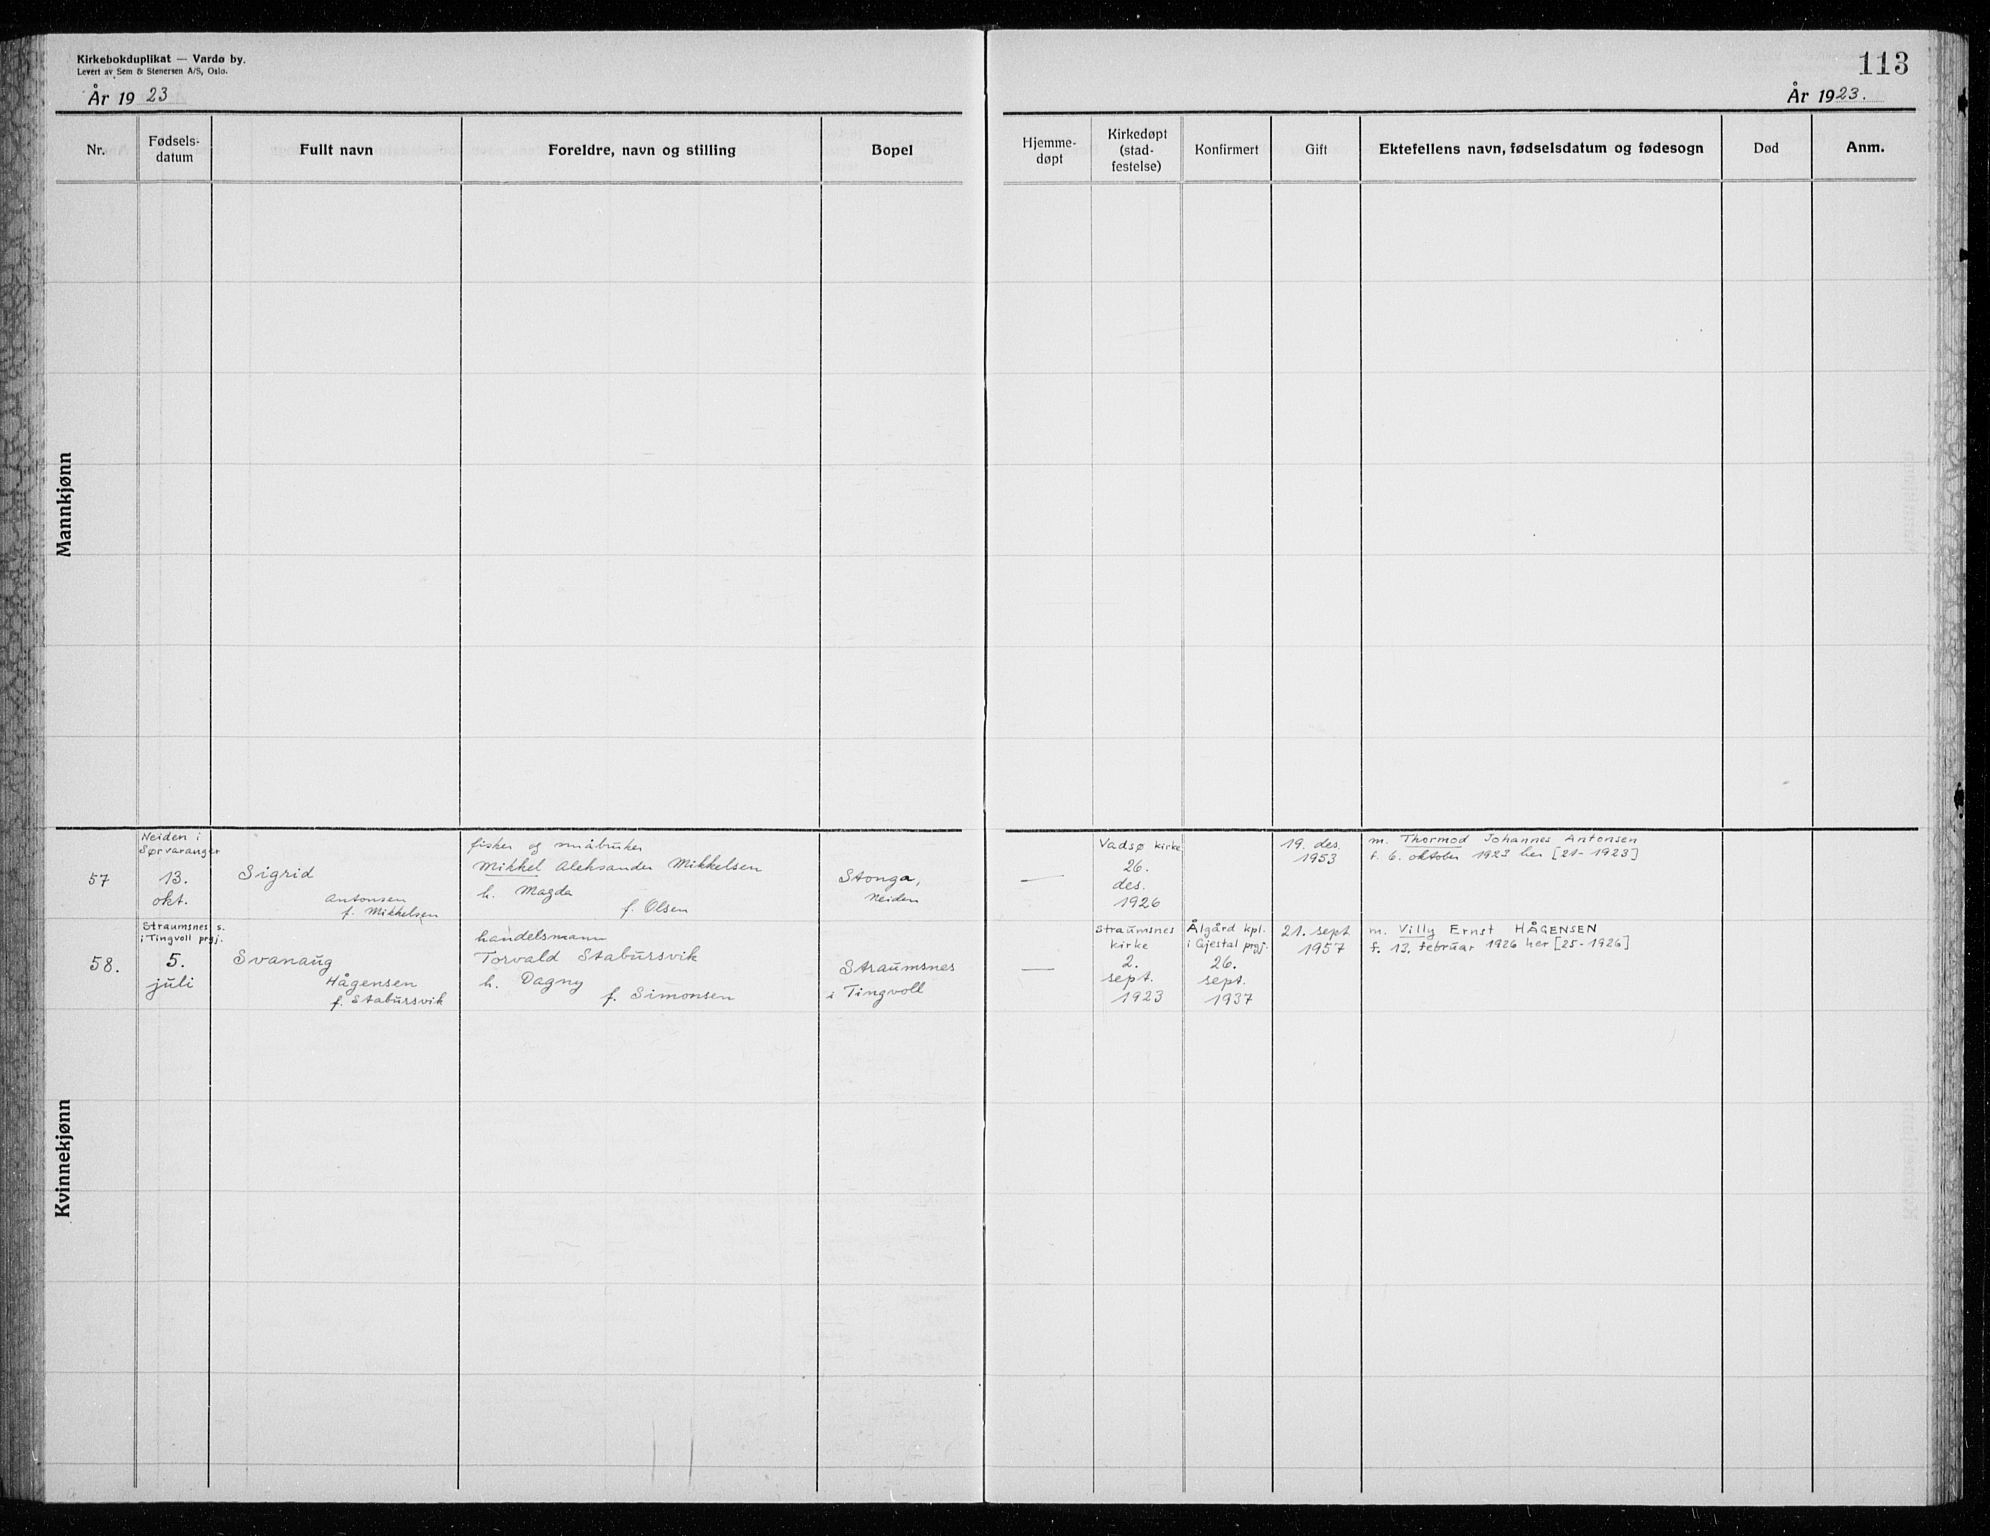 Kirkebokduplikat — Vardø by.
Levert av Sem & Stenersen A/S, Oslo.
År 1923
113
År 1923.
Nr.
Fødsels-
datum
Fullt navn
Foreldre, navn og stilling
Bopel
Hjemme-
døpt
Kirkedøpt
(stad-
festelse)
Konfirmert
Gift
Ektefellens navn, fødselsdatum og fødesogn
Død
Anm.
Mannkjønn
Kvinnekjønn
57
Neiden i
Sørvaranger
13.
okt.
Sigrid
Antonsen
f. Mikkelsen
fisker og småbruker
Mikkel Aleksander Mikkelsen
h. Magda
f. Olsen
Stonga,
Neiden
—
Vadsø kirke
26.
des.
1926
19. des.
1953
m. Thormod Johannes Antonsen
f. 6. oktober 1923 her [21-1923]
58.
Straumsnes s.
i Tingvoll prgj.
5.
juli
Svanaug
Hågensen
f. Stabursvik
handelsmann
Torvald Stabursvik
h. Dagny
f. Simonsen
Straumsnes
i Tingvoll
—
Straumsnes
kirke
2.
sept.
1923
Ålgård kpl.
i Gjestal prgj.
26.
sept.
1937
21. sept
1957
m. Villy Ernst HÅGENSEN
f. 13. februar 1926 her [25-1926]